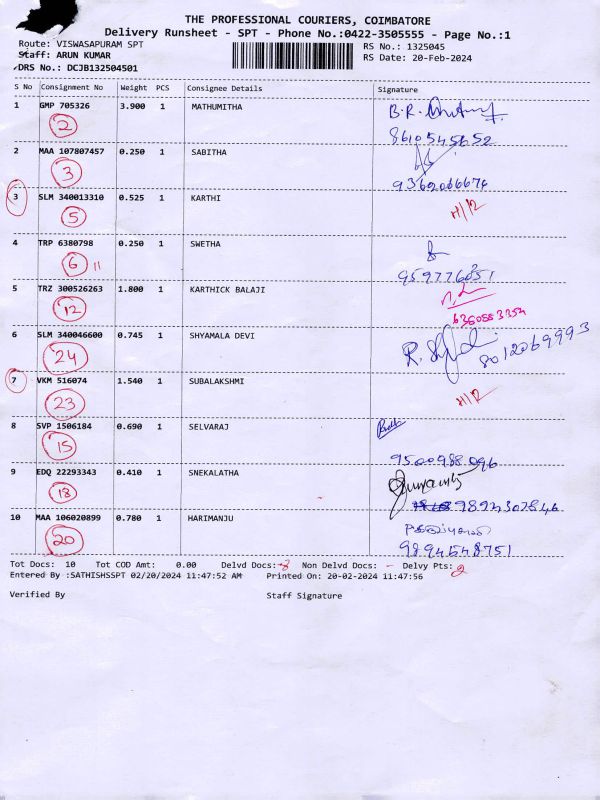 THE PROFESSIONAL COURIERS, COIMBATORE
Delivery Runsheet - SPT - Phone No.:0422-3505555 - Page No.:1
Route: VISWASAPURAM SPT RS No.: 1325045
Staff: ARUN KUMAR RS Date: 20-Feb-2024
DRS No.: DCJB132504501
S No Consignment No Weight PCS Consignee Details Signature
1 GMP 705326 3.900 1 MATHUMITHA B.R.
2 8610545652
2 MAA 107807457 0.250 1 SABITHA
3 9362066676
3 SLM 340013310 0.525 1 KARTHI H/R
5
4 TRP 6380798 0.250 1 SWETHA
6 11 9597776051
5 TRZ 300526263 1.800 1 KARTHICK BALAJI
12 6380553354
6 SLM 340046600 0.745 1 SHYAMALA DEVI
24 8012069993
7 VKM 516074 1.540 1 SUBALAKSHMI H/R
23
8 SVP 1506184 0.690 1 SELVARAJ
15 9500988096
9 EDQ 22293343 0.410 1 SNEKALATHA
18 9894307846
10 MAA 106020899 0.780 1 HARIMANJU
20 9894548751
Tot Docs: 10 Tot COD Amt: 0.00 Delvd Docs: 8 Non Delvd Docs: - Delvy Pts: 2
Entered By :SATHISHSSPT 02/20/2024 11:47:52 AM Printed On: 20-02-2024 11:47:56
Verified By Staff Signature